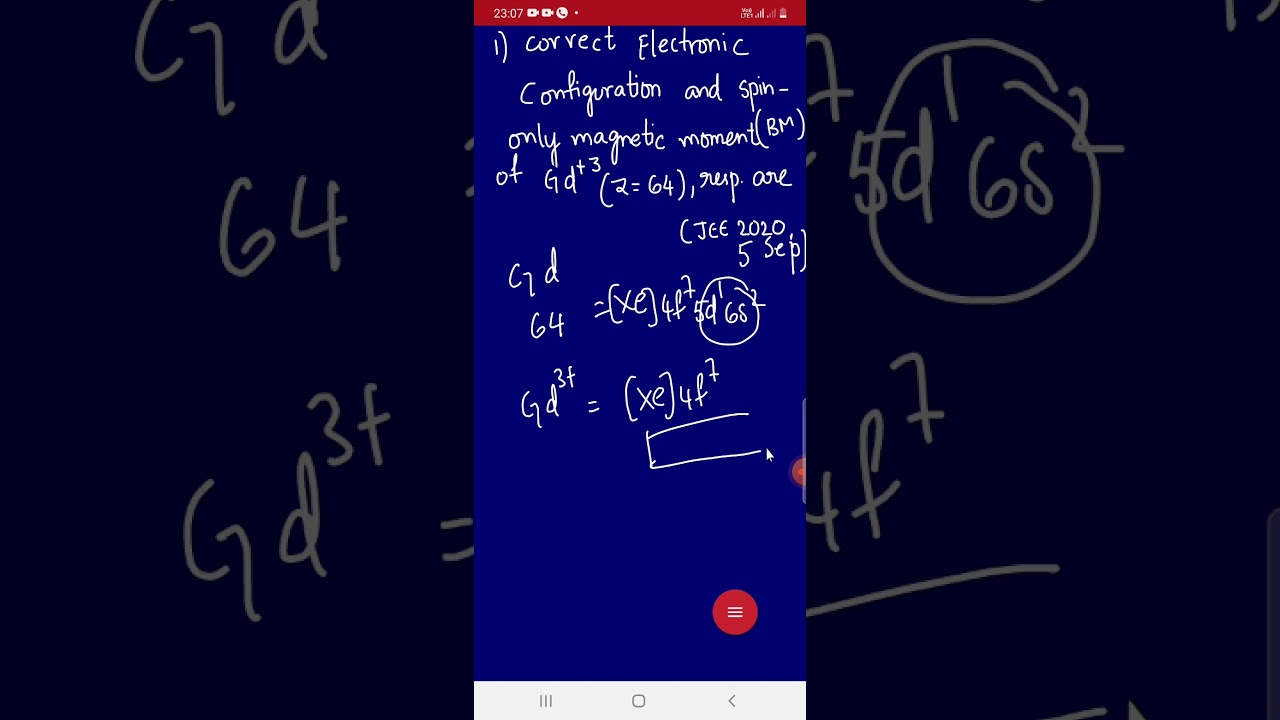 23:07
Vo))
LTE1
1) Correct Electronic
Configuration and spin-
only magnetic moment (BM)
of Gd+3 (z=64), resp. are
(JEE 2020
5 Sep)
Gd
64 = [Xe] 4f7 5d1 6s2
Gd3+ = [Xe] 4f7